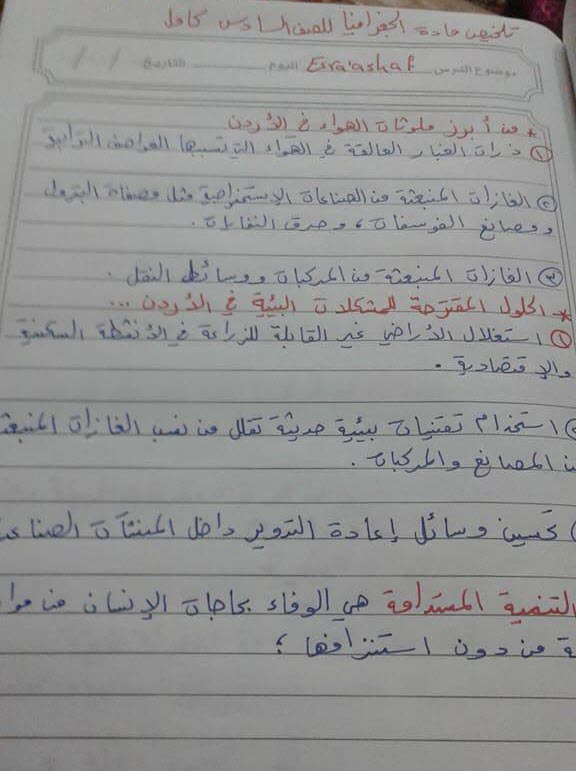 تلخيص مادة الجغرافيا للصف السادس كامل
موضوع الدرس Esra'ashaf اليوم التاريخ / /
* من أبرز ملوثات الهواء في الأردن
① ذرات الغبار العالقة في الهواء التي تسببها العواصف الترابية
② الغازات المنبعثة من الصناعات الاستخراجية مثل مصفاة البترول
ومصانع الفوسفات، وحرق النفايات.
③ الغازات المنبعثة من المركبات ووسائط النقل.
* الحلول المقترحة للمشكلات البيئية في الأردن ...
① استغلال الأراضي غير القابلة للزراعة في الأنشطة السكنية
والاقتصادية.
استخدام تقنيات بيئية حديثة تقلل من نسب الغازات المنبعثة
من المصانع والمركبات.
تحسين وسائل إعادة التدوير داخل المنشآت
التنمية المستدامة هي الوفاء بحاجات الإنسان من
من دون استنزافها؛